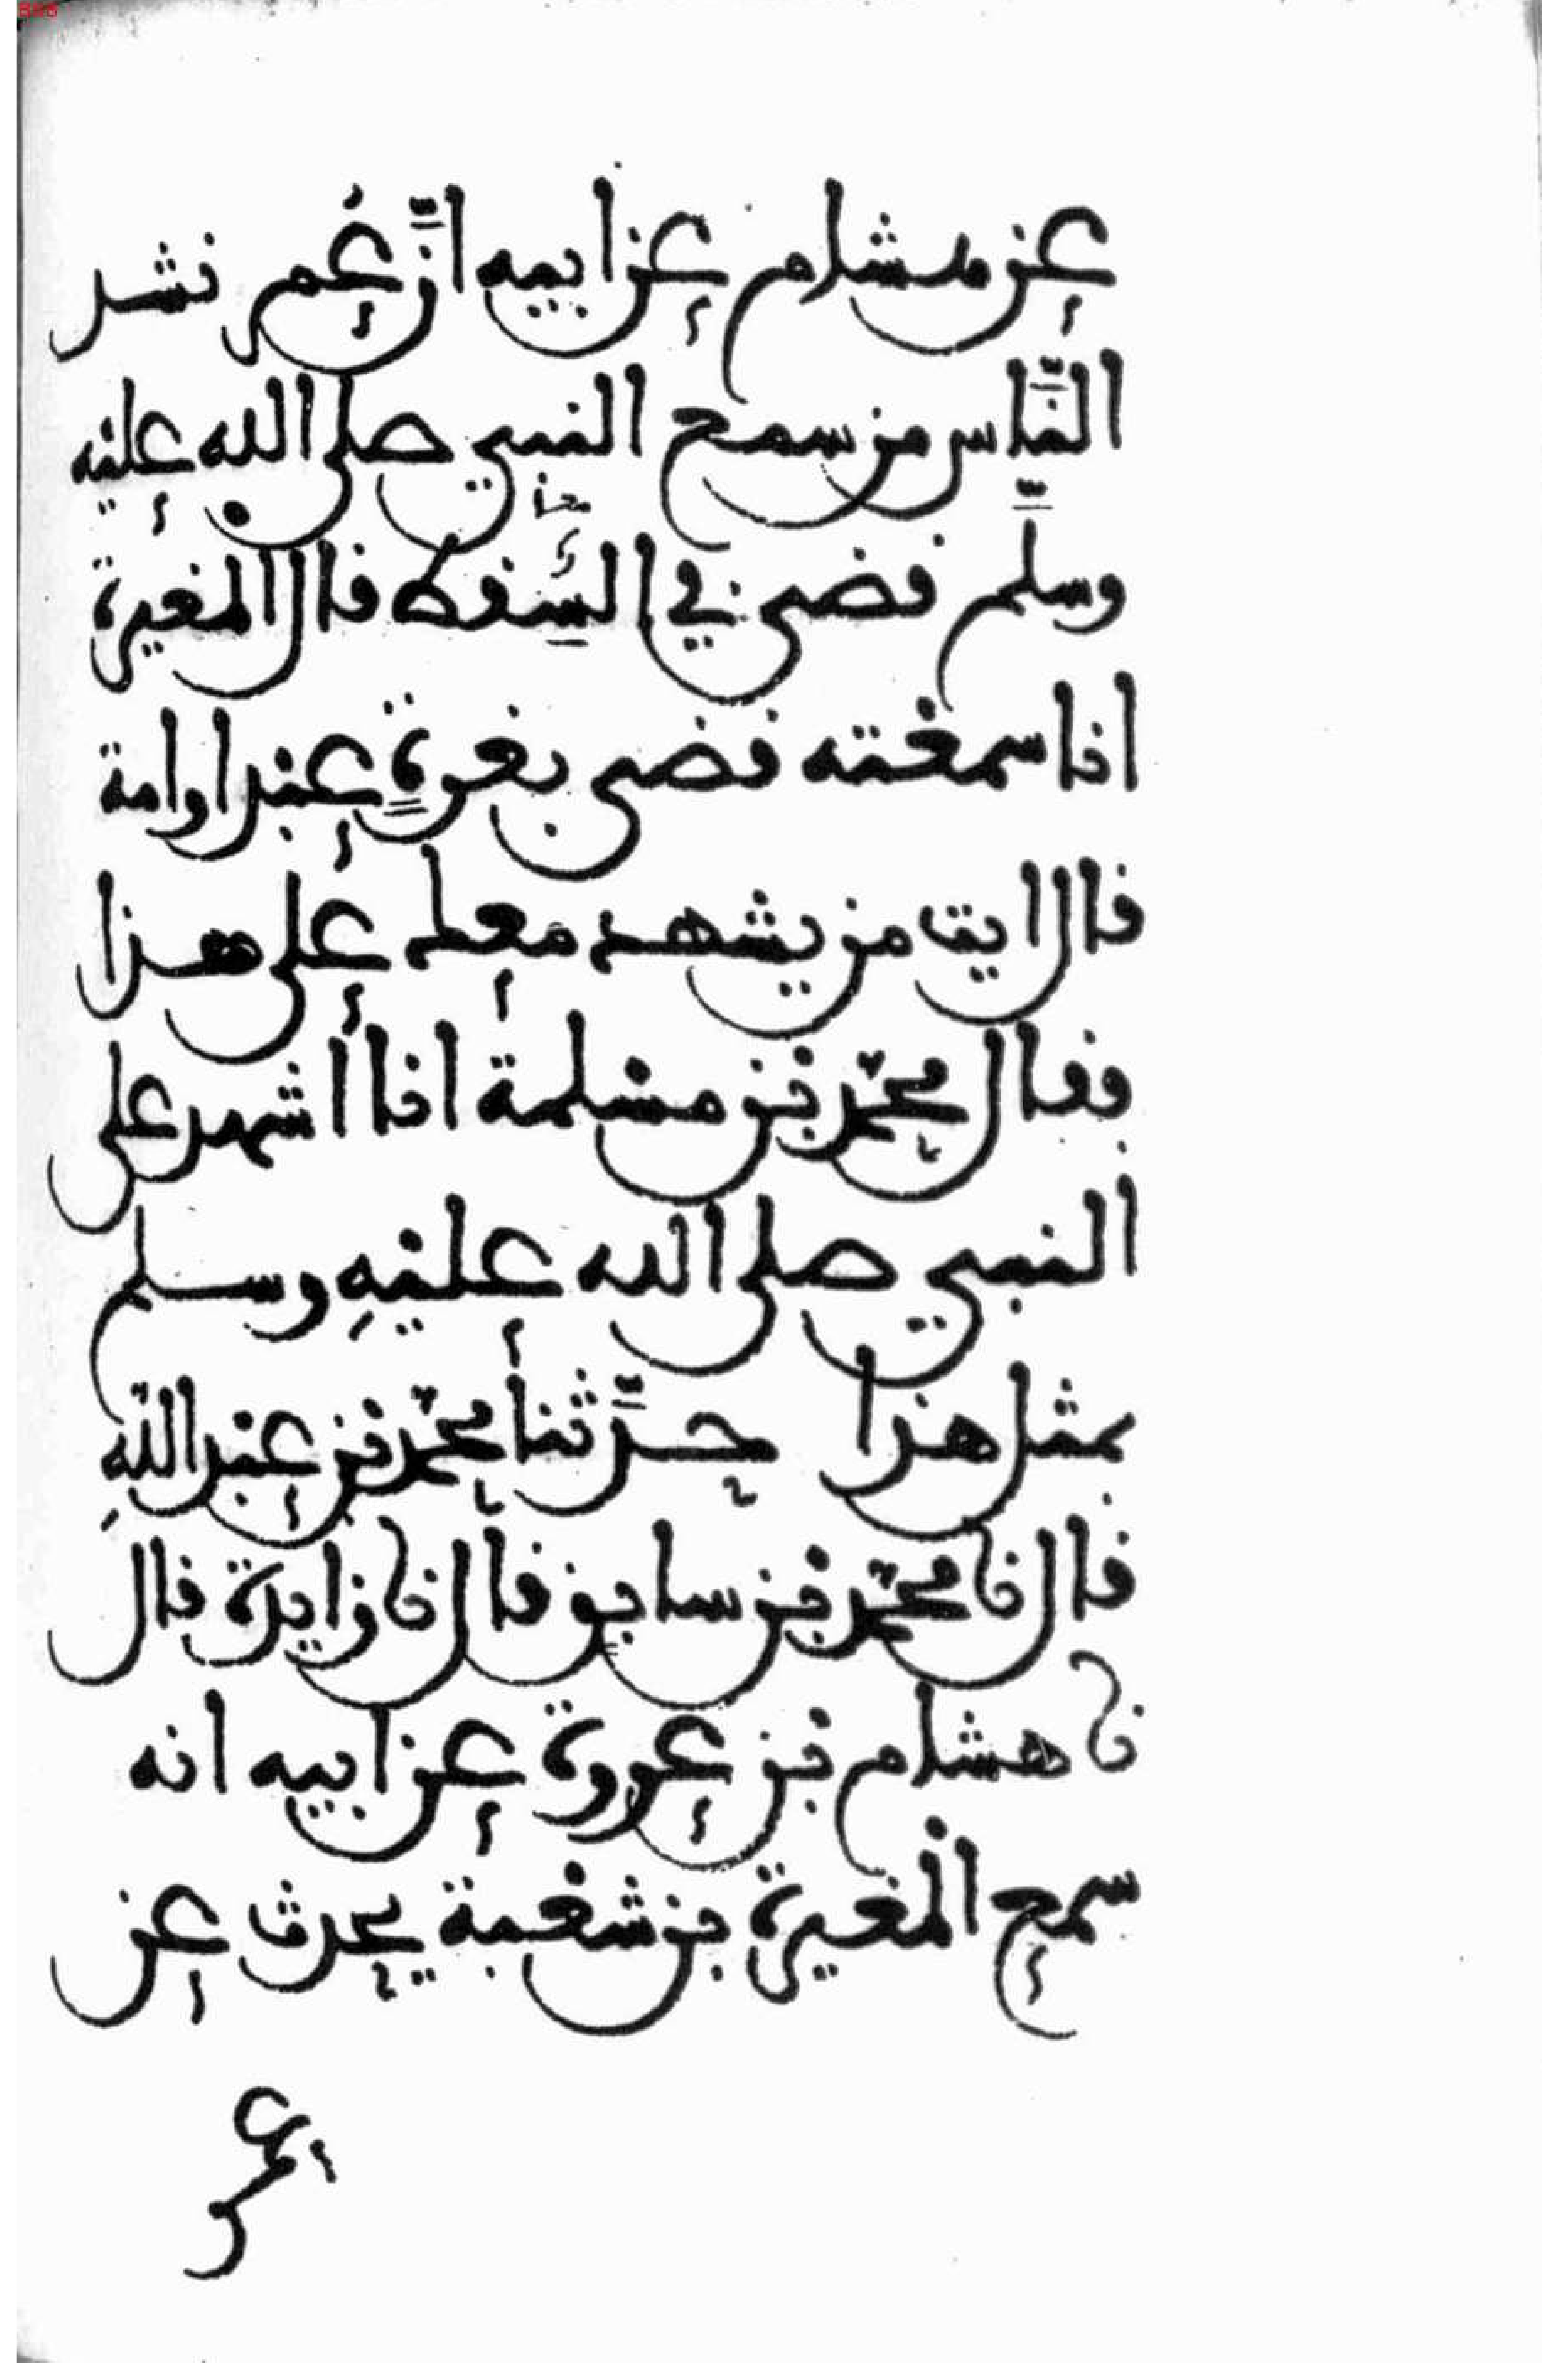 عن هشام عن ابيه انّ عمر نشد
النّاس من سمع النبي صلى الله عليه
وسلّم قضى في السِّقط قال المغيرة
انا سمعته قضى بغرةٍ عبد او امة
قال ايت من يشهد معك على هذا
فقال محمّد بن مسلمة انا أشهد على
النبي صلى الله عليهِ وسلم
بمثل هذا حدّثنا محمّد بن عبد اللّهِ
قال نا محمّد بن سابق قال نا زايدة قال
نا هشام بن عروة عن ابيه انه
سمع المغيرة بن شعبة يحدث عن
عمر